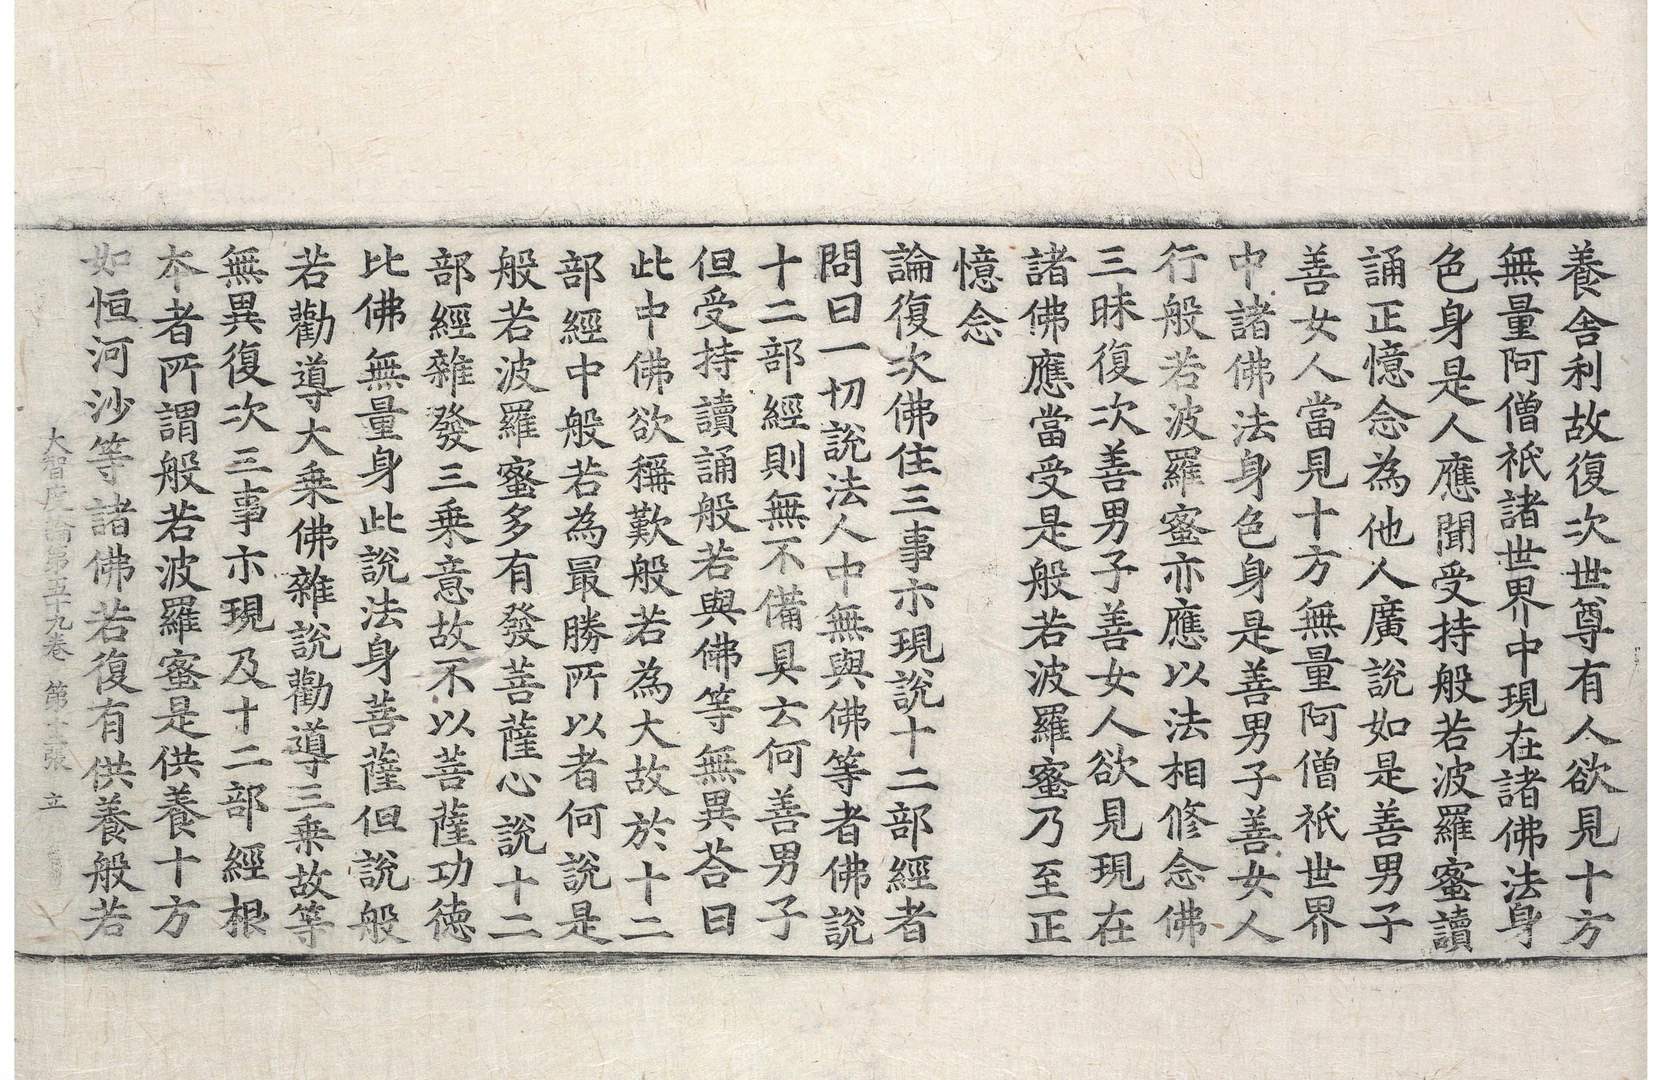 養舍利故復次世尊有人欲見十方
無量阿僧祇諸世界中現在諸佛法身
色身是人應聞受持般若波羅蜜讀
誦正憶念為他人廣說如是善男子
善女人當見十方無量阿僧祇世界
中諸佛法身色身是善男子善女人
行般若波羅蜜亦應以法相修念佛
三昧復次善男子善女人欲見現在
諸佛應當受是般若波羅蜜乃至正
憶念
論復次佛住三事示現說十二部經者
問曰一切說法人中無與佛等者佛說
十二部經則無不備具云何善男子
但受持讀誦般若與佛等無異荅曰
此中佛欲稱歎般若為大故於十二
部經中般若為最勝所以者何說是
般若波羅蜜多有發菩薩心說十二
部經雜發三乘意故不以菩薩功德
比佛無量身此說法身菩薩但說般
若勸導大乘佛雜說勸導三乘故等
無異復次三事示現及十二部經根
本者所謂般若波羅蜜是供養十方
如恒河沙等諸佛若復有供養般若
大智度論第五十九卷 第十三張 立